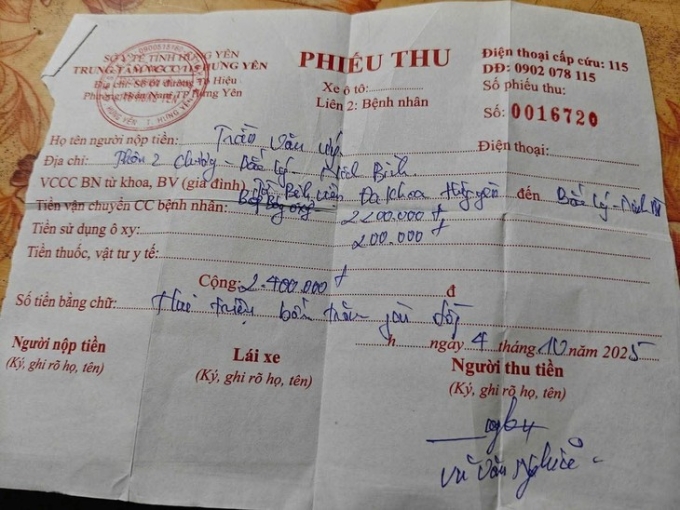 SỞ Y TẾ TỈNH HƯNG YÊN
TRUNG TÂM VCCC 115 HƯNG YÊN
Địa chỉ: Số 61 đường Hiệu
Phường Hiến Nam TP Hưng Yên
PHIẾU THU
Xe ô tô:
Liên 2: Bệnh nhân
Điện thoại cấp cứu: 115
DĐ: 0902 078 115
Số phiếu thu:
Số: 0016720
Họ tên người nộp tiền: Trần Văn Điện thoại:
Địa chỉ: 2 - Bắc Lý - Ninh Bình
VCCC BN từ khoa, BV (gia đình) Bệnh viện Đa Khoa Hưng yên đến Bắc Lý - Ninh
Tiền vận chuyển CC bệnh nhân: 2200.000 đ
Tiền sử dụng ô xy: 200.000 đ
Tiền thuốc, vật tư y tế:
Cộng: 2.400.000 đ đ
Số tiền bằng chữ: Hai triệu bốn trăm đồng
h ngày 4 tháng 10 năm 2025
Người nộp tiền
(Ký, ghi rõ họ, tên)
Lái xe
(Ký, ghi rõ họ, tên)
Người thu tiền
(Ký, ghi rõ họ, tên)
Vũ Văn